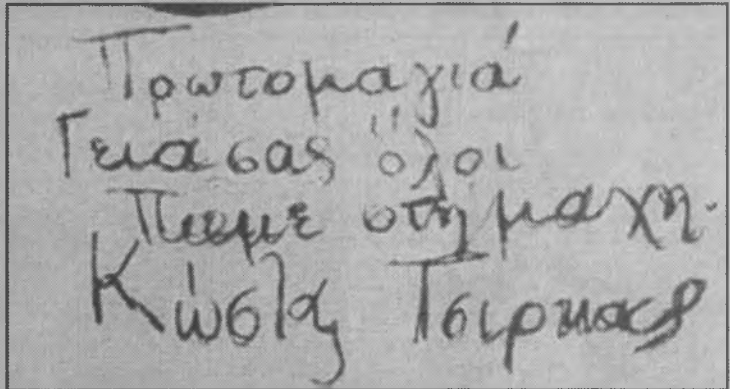 Πρωτομαγιά
Γειάσας ὅλοι
Παμε στη μαχη.
Κώστας Τσιρκας